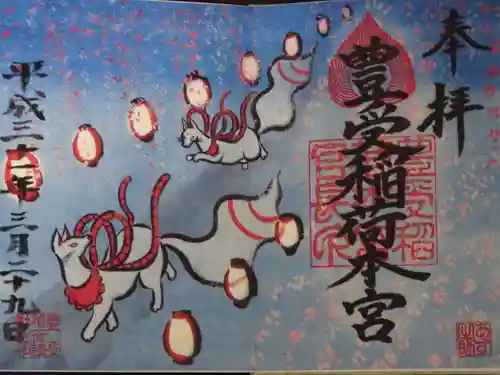 奉拝
豊受稲荷本宮
平成三十一年三月二十九日